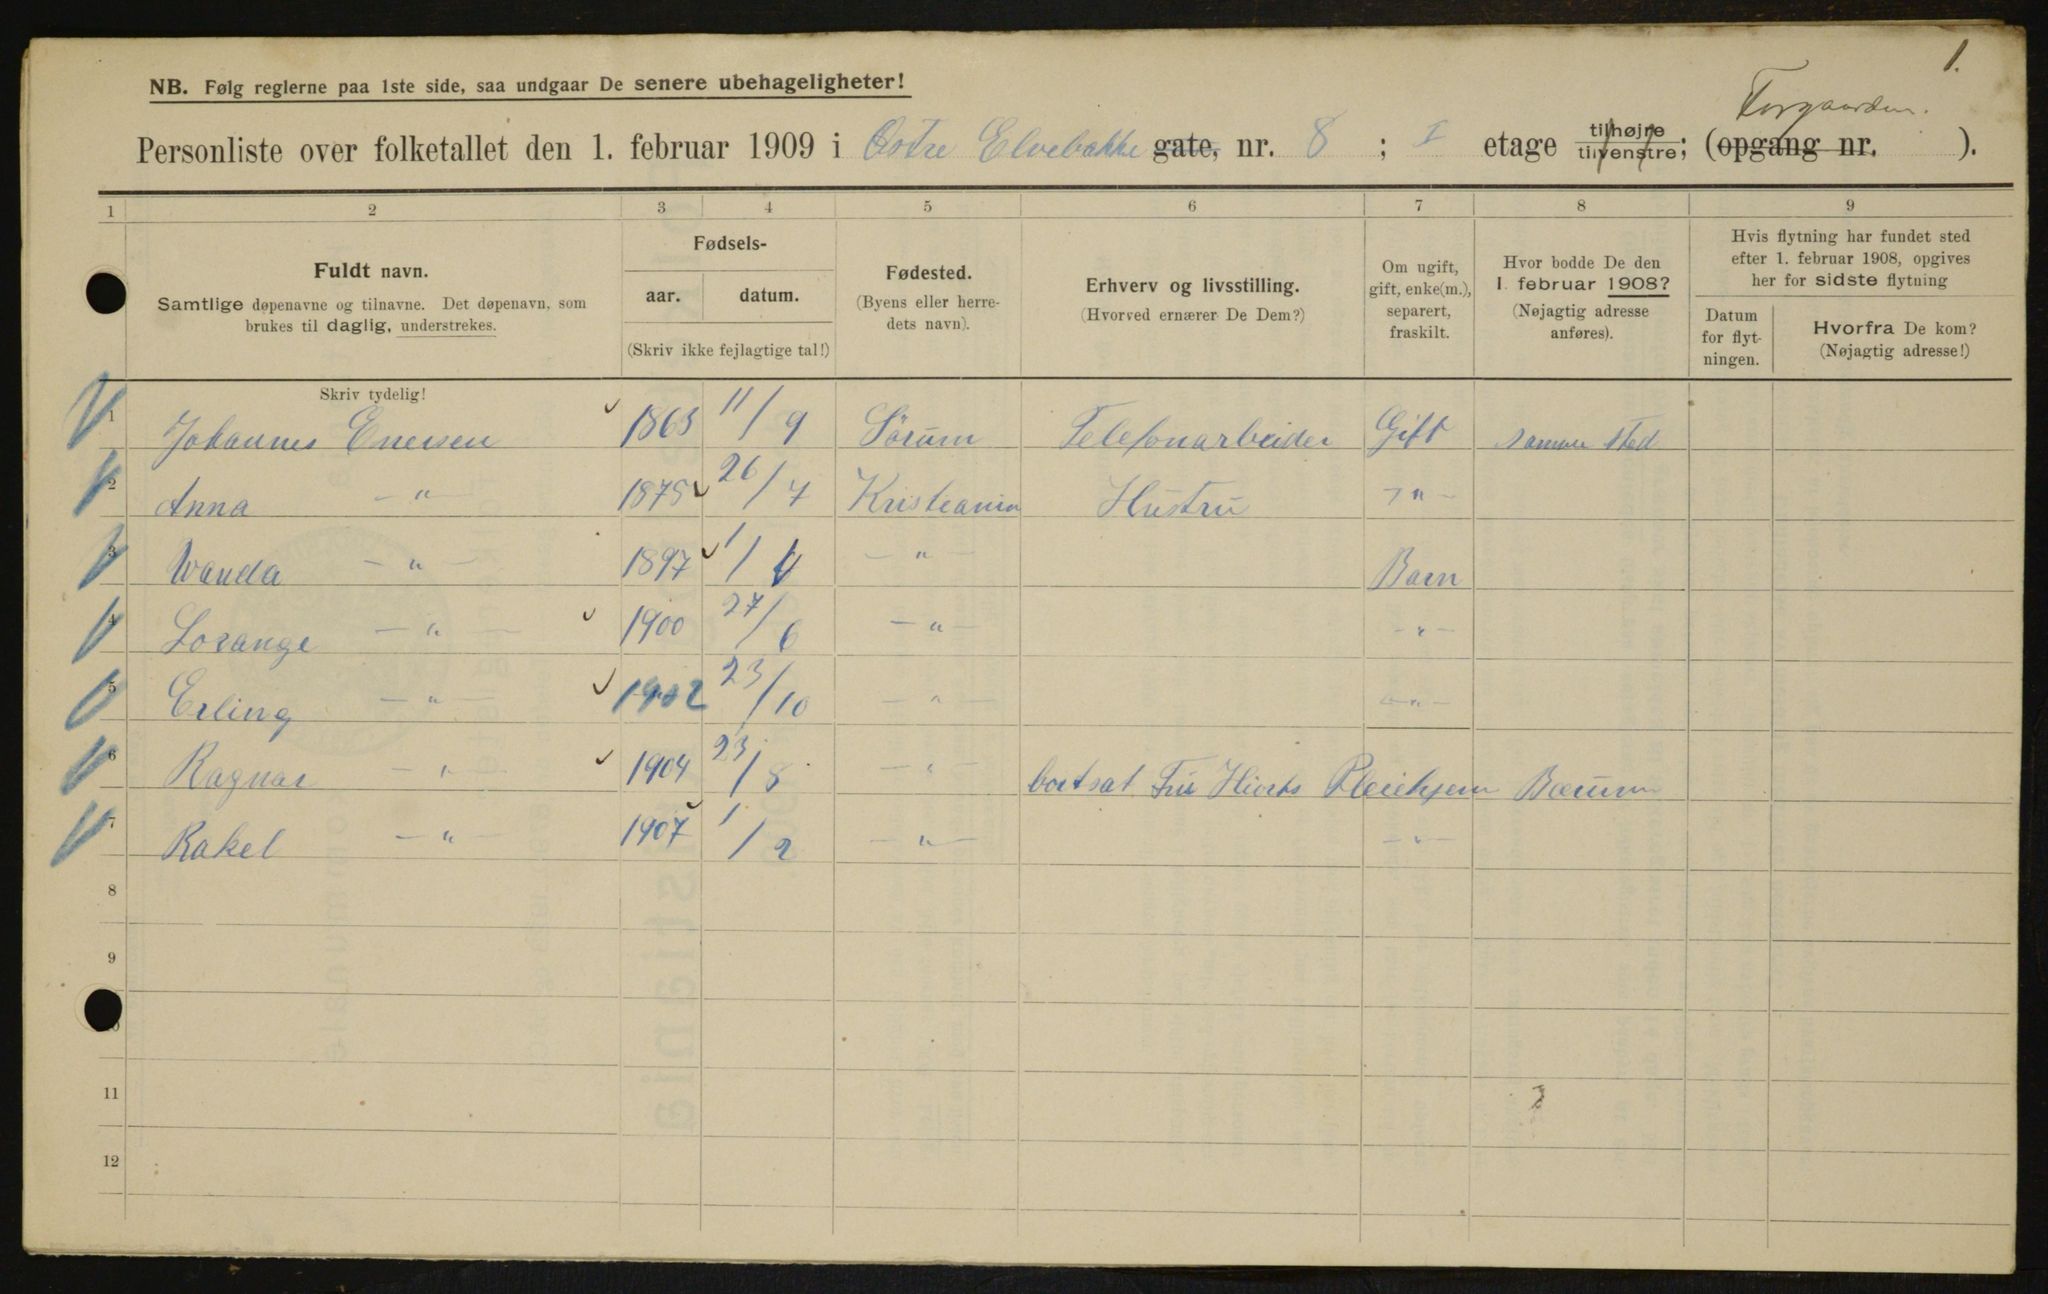 1.
NB. Følg reglerne paa 1ste side, saa undgaar De senere ubehageligheter!
Forgaarden.
Personliste over folketallet den 1. februar 1909 i Østre Elvebakke gate, nr. 8 ; I etage tilhøjre tilvenstre; (opgang nr. ).
1 2 3 4 5 6 7 8 9
Fuldt navn.
Samtlige døpenavne og tilnavne. Det døpenavn, som
brukes til daglig, understrekes.
Fødsels-
aar. datum.
(Skriv ikke fejlagtige tal!)
Fødested.
(Byens eller herre-
dets navn).
Erhverv og livsstilling.
(Hvorved ernærer De Dem?)
Om ugift,
gift, enke(m.),
separert,
fraskilt.
Hvor bodde De den
1. februar 1908?
(Nøjagtig adresse
anføres).
Hvis flytning har fundet sted
efter 1. februar 1908, opgives
her for sidste flytning
Datum
for flyt-
ningen.
Hvorfra De kom?
(Nøjagtig adresse!)
Skriv tydelig!
1 Johannes Enersen 1863 11/9 Sörum Telefonarbeider Gift samme sted
2 Anna — " — 1875 26/7 Kristiania Hustru — " —
3 Wanda — " — 1897 1/4 — " — Barn
4 Lorange — " — 1900 27/6 — " — — " —
5 Erling — " — 1902 23/10 — " — — " —
6 Ragnar — " — 1904 23/8 — " — bortsat Fru Hiorts Pleiehjem Bærum
7 Rakel — " — 1907 1/2 — " — — " —
8
9
10
11
12